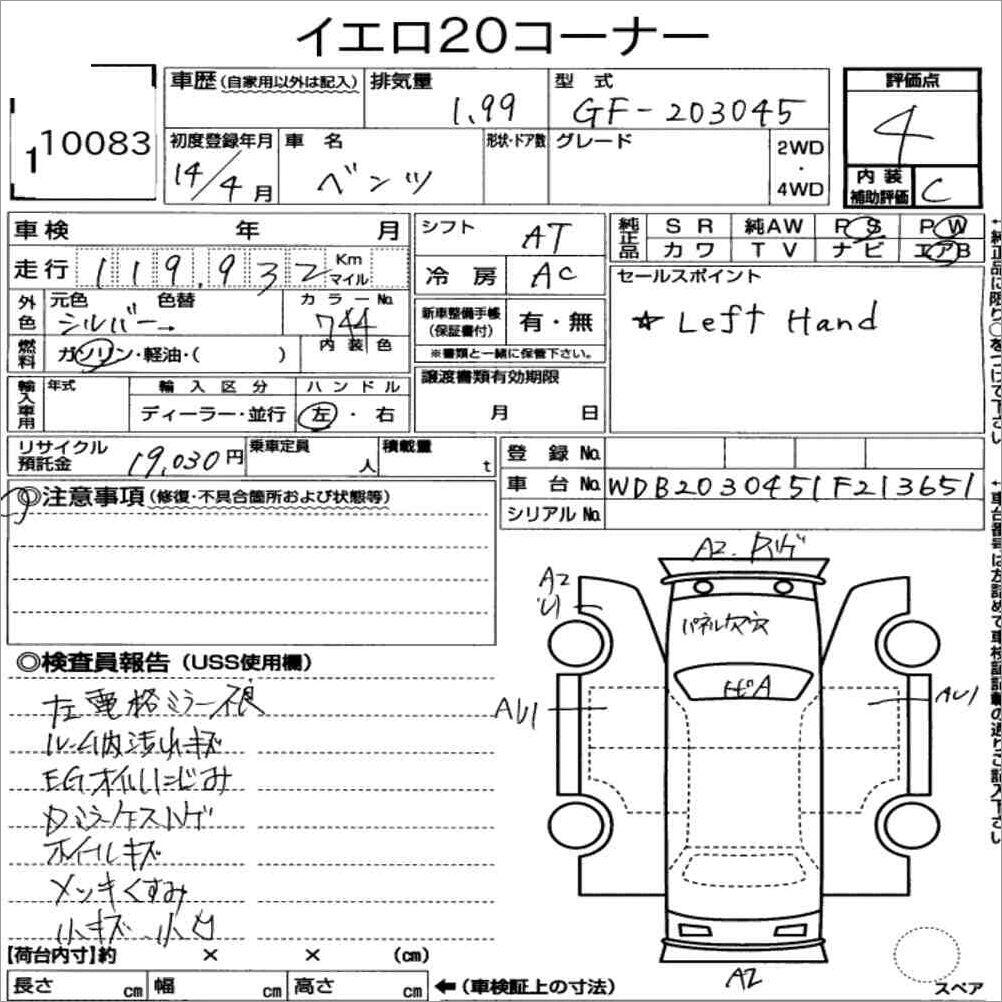 イエロ20コーナー
1 10083
車歴 (自家用以外は記入) 排気量 1.99 型式 GF-203045
初度登録年月 14/4月 車名 ベンツ 形状・ドア数 グレード 2WD・4WD
評価点 4
内装補助評価 C
車検 年 月
走行 119,932 Km マイル
外色 元色 シルバー 色替 → カラーNo. 744
燃料 ガソリン・軽油・( ) 内装色
輸入車用 年式 輸入区分 ディーラー・並行 ハンドル 左・右
シフト AT
冷房 AC
新車整備手帳(保証書付) 有・無
※書類と一緒に保管下さい。
譲渡書類有効期限
月 日
純正品 SR 純AW PS PW
カワ TV ナビ エアB
セールスポイント
☆ Left Hand
リサイクル預託金 19,030円 乗車定員 人 積載量 t
登録No.
車台No. WDB2030451F213651
シリアルNo.
◎注意事項 (修復・不具合箇所および状態等)
◎検査員報告 (USS使用欄)
左電格ミラー不良
ルーム内汚れキズ
EGオイルにじみ
ホイールキズ
メッキくすみ
小キズ、小凹
A2.
A2
U1
トビA
AU1
AU1
A2
スペア
【荷台内寸】約 × × (cm)
長さ cm 幅 cm 高さ cm ←(車検証上の寸法)
↑純正品に限り○をつけて下さい
↑車台番号は左詰めで車検証記載の通りご記入下さい